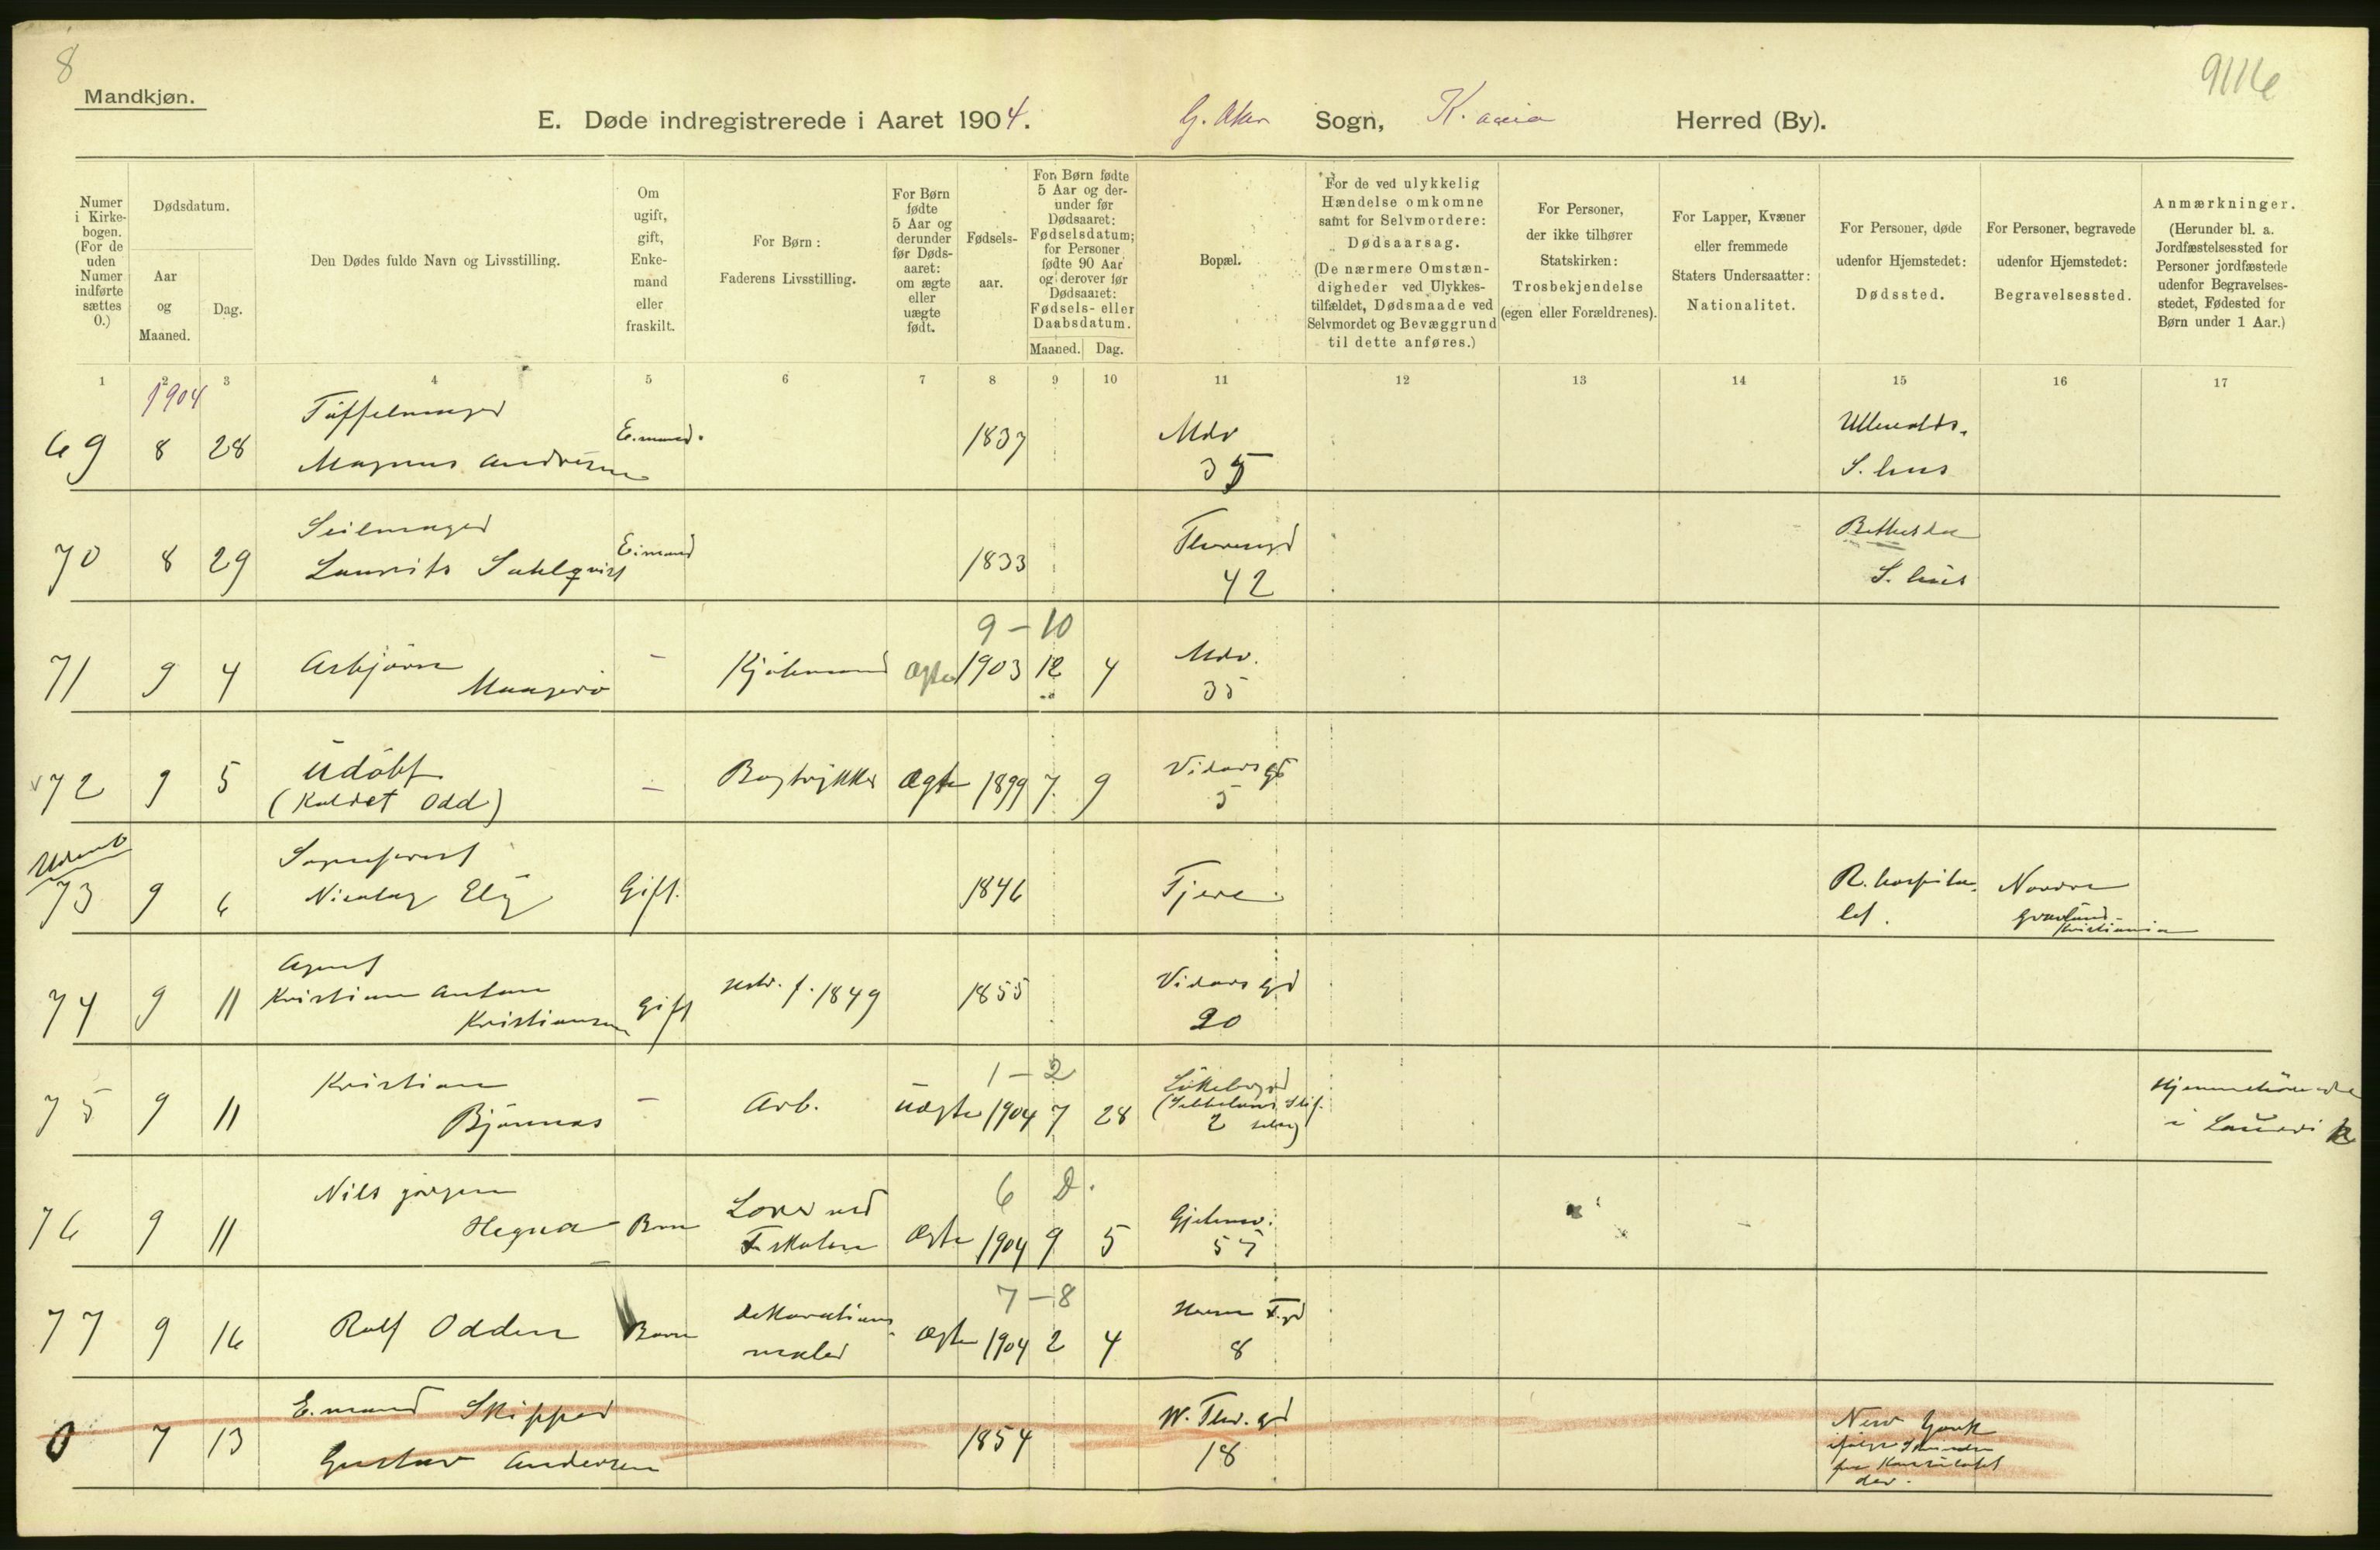 8
Mandkjøn.
9116
E. Døde indregistrerede i Aaret 1904. G. Aker Sogn, K.ania Herred (By).
Numer i Kirke-bogen. (For de uden Numer indførte sættes 0.)
Dødsdatum.
Aar og Maaned.
Dag.
Den Dødes fulde Navn og Livsstilling.
Om ugift, gift, Enke-mand eller fraskilt.
For Børn:
Faderens Livsstilling.
For Børn fødte 5 Aar og derunder før Døds-aaret: om ægte eller uægte født.
Fødsels-aar.
For Børn fødte 5 Aar og der-under før Dødsaaret: Fødselsdatum; for Personer fødte 90 Aar og derover før Dødsaaret: Fødsels- eller Daabsdatum.
Maaned. Dag.
Bopæl.
For de ved ulykkelig Hændelse omkomne samt for Selvmordere: Dødsaarsag.
(De nærmere Omstæn-digheder ved Ulykkes-tilfældet, Dødsmaade ved Selvmordet og Bevæggrund til dette anføres.)
For Personer, der ikke tilhører Statskirken: Trosbekjendelse (egen eller Forældrenes).
For Lapper, Kvæner eller fremmede Staters Undersaatter: Nationalitet.
For Personer, døde udenfor Hjemstedet: Dødssted.
For Personer, begravede udenfor Hjemstedet: Begravelsessted.
Anmærkninger.
(Herunder bl. a. Jordfæstelsessted for Personer jordfæstede udenfor Begravelses-stedet, Fødested for Børn under 1 Aar.)
1 2 3 4 5 6 7 8 9 10 11 12 13 14 15 16 17
1904
Töffelmager
69 8 28 Magnus Andresen E.mand. 1837 Mdv 35 Ullevolds. S.hus
Seilmager
70 8 29 Laurits Sahlqvist E.mand 1833 Thorvngd 42 Bethesda S.hus
9-10
71 9 4 Asbjörn Maagerö - Kjöbmand Ægte 1903 12 4 Mdv. 35
72 9 5 Udöbt (Kaldet Odd) - Bogtrykker Ægte 1899 7 9 Vidarsgd 5
Udenb
73 9 6 Sogneprest Nicolay Ely Gift. 1846 Tjere R.hospita-let. Nordre Gravlund- Kristiania
Agent
74 9 11 Kristian Anton Kristiansen Gift Hstr. f. 1849 1855 Vidarsgd 20
1-2
75 9 11 Kristian Bjönnes - Arb. Uægte 1904 7 28 2 Hjemmehörende i Laurvik
6 D.
76 9 11 Nils Jörgen Hegna Barn Lærer ved F.skolen Ægte 1904 9 5 55
7-8
77 9 16 Rolf Odden Barn Dekorations-maler Ægte 1904 2 4 8
E.mand Skipper
0 7 13 Gustav Andersen 1854 W.Thr.gd 18 New York ifölge Skrivelse fra Konsulatet der.